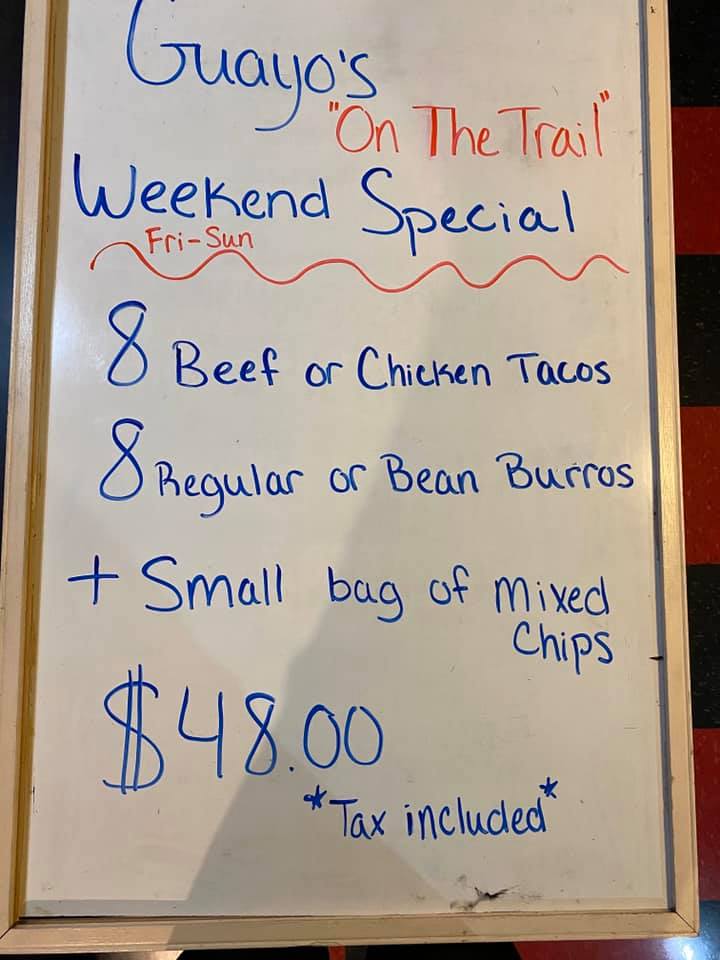 Guayo's
"On The Trail"
Weekend Special
Fri-Sun
8 Beef or Chicken Tacos
8 Regular or Bean Burros
+ Small bag of Mixed
Chips
$48.00
*Tax included*